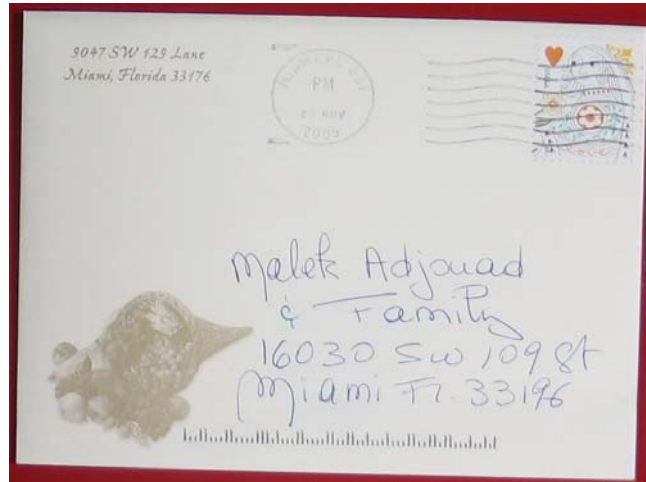 9047 SW 129 Lane
Miami, Florida 33176
PM
2009
love
Malek Adjouad
& Family
16030 SW 109 St
Miami Fl. 33196